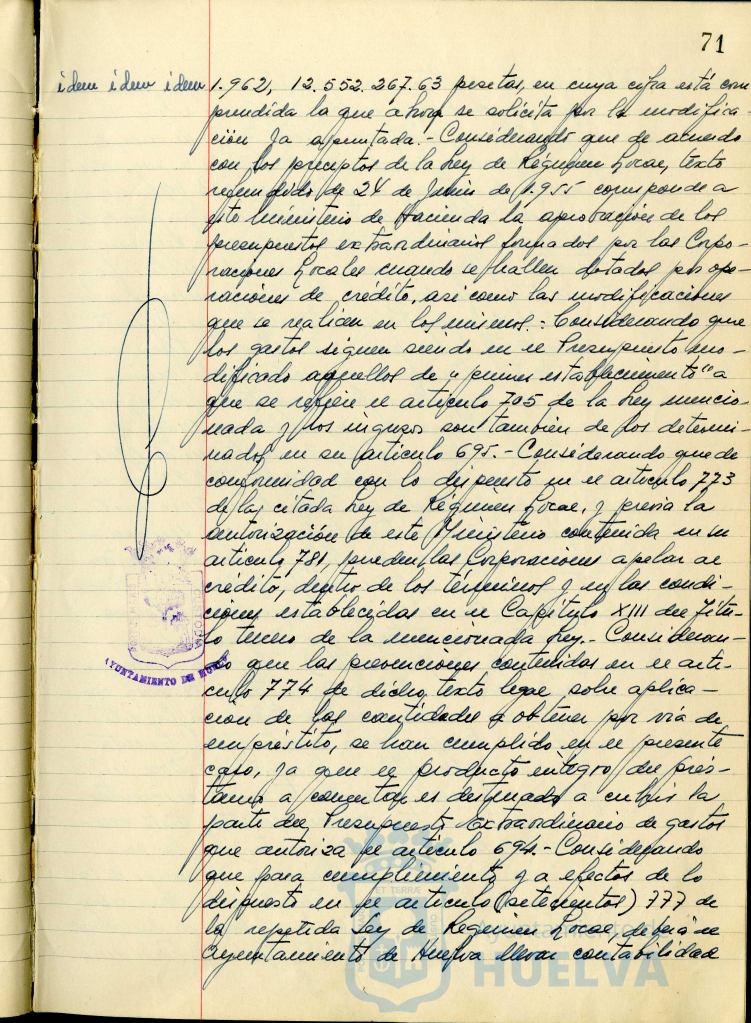 71
idem idem idem 1.962, 12.552.267.63 pesetas, en cuya cifra está com
prendida la que ahora se solicita por la modifica-
ción ya apuntada.- Considerando que de acuerdo
con los preceptos de la Ley de Régimen Local, texto
refundido de 24 de Junio de 1.955 corresponde a
este Ministerio de Hacienda la aprobación de los
presupuestos extraordinarios formados por las Corpo-
raciones Locales cuando se hallen dotados por ope-
raciones de crédito, asi como las modificaciones
que se realicen en los mismos.: Considerando que
los gastos siguen siendo en el Presupuesto mo-
dificado aquellos de "primer establecimiento" a
que se refiere el artículo 705 de la Ley mencio-
nada y los ingresos son también de los determi-
nados en su artículo 695.- Considerando que de
conformidad con lo dispuesto en el artículo 773
de la citada Ley de Régimen Local, y previa la
autorización de este Ministerio contenida en su
artículo 781, pueden las Corporaciones apelar al
crédito, dentro de los términos y en las condi-
ciones establecidas en el Capítulo XIII del Títu-
lo tercero de la mencionada Ley.- Consideran-
do que las prevenciones contenidas en el artí-
culo 774 de dicho texto legal, sobre aplica-
ción de las cantidades a obtener por vía de
empréstito, se han cumplido en el presente
caso, ya que el producto íntegro del prés-
tamo a concertar es destinado a cubrir la
parte del Presupuesto Extraordinario de gastos
que autoriza el artículo 694.- Considerando
que para cumplimiento y a efectos de lo
dispuesto en el artículo (setecientos) 777 de
la repetida Ley de Régimen Local, deberá el
Ayuntamiento de Huelva llevar contabilidad
AYUNTAMIENTO DE HUELVA
HUELVA